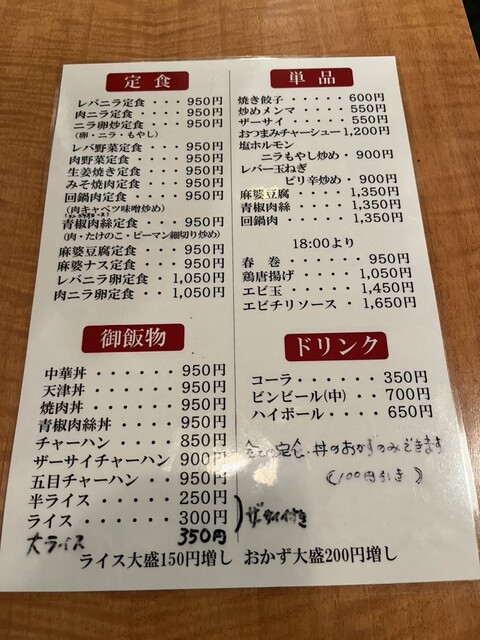 定食
レバニラ定食・・・950円
肉ニラ定食・・・・950円
ニラ卵炒定食・・・950円
(卵・ニラ・もやし)
レバ野菜定食・・・950円
肉野菜定食・・・・950円
生姜焼き定食・・・950円
みそ焼肉定食・・・950円
回鍋肉定食・・・・950円
(肉キャベツ味噌炒め)
青椒肉絲定食・・・950円
(肉・たけのこ・ピーマン細切り炒め)
麻婆豆腐定食・・・950円
麻婆ナス定食・・・950円
レバニラ卵定食・1,050円
肉ニラ卵定食・・1,050円
御飯物
中華丼・・・・・・950円
天津丼・・・・・・950円
焼肉丼・・・・・・950円
青椒肉絲丼・・・・950円
チャーハン・・・・850円
ザーサイチャーハン 900円
五目チャーハン・・950円
半ライス・・・・・250円
ライス・・・・・・300円
大ライス 350円
ザーサイ付き
単品
焼き餃子・・・・・600円
炒めメンマ・・・・550円
ザーサイ・・・・・550円
おつまみチャーシュー1,200円
塩ホルモン
ニラもやし炒め・900円
レバー玉ねぎ
ピリ辛炒め・900円
麻婆豆腐・・・・1,350円
青椒肉絲・・・・1,350円
回鍋肉・・・・・1,350円
18:00より
春巻・・・・・・950円
鶏唐揚げ・・・・1,050円
エビ玉・・・・・1,450円
エビチリソース・1,650円
ドリンク
コーラ・・・・・・350円
ビンビール(中)・・700円
ハイボール・・・・650円
全ての定食・丼のおかずのみできます
(100円引き)
ライス大盛150円増し おかず大盛200円増し